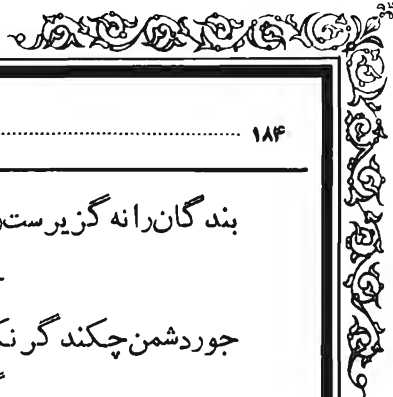 ۱۸۴
بندگان را نه گزیرست
جور دشمن چکند گر